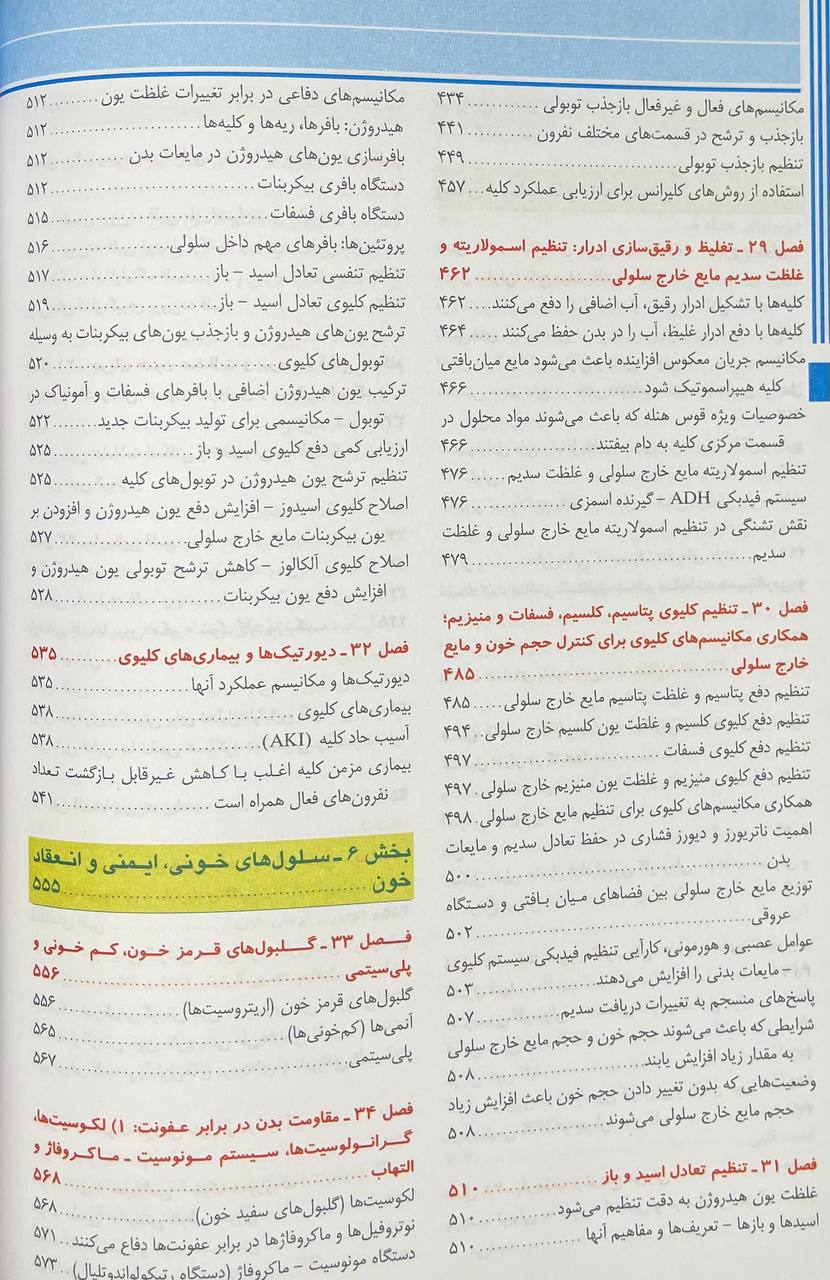 مکانیسم‌های فعال و غیرفعال بازجذب توبولی ............ ۴۳۴
بازجذب و ترشح در قسمت‌های مختلف نفرون ............ ۴۴۱
تنظیم بازجذب توبولی ............ ۴۴۹
استفاده از روش‌های کلیرانس برای ارزیابی عملکرد کلیه ... ۴۵۷
فصل ۲۹ ـ تغلیظ و رقیق‌سازی ادرار: تنظیم اسمولاریته و
غلظت سدیم مایع خارج سلولی ............ ۴۶۲
کلیه‌ها با تشکیل ادرار رقیق، آب اضافی را دفع می‌کنند .... ۴۶۲
کلیه‌ها با دفع ادرار غلیظ، آب را در بدن حفظ می‌کنند ..... ۴۶۴
مکانیسم جریان معکوس افزاینده باعث می‌شود مایع میان‌بافتی
کلیه هیپراسموتیک شود ............ ۴۶۶
خصوصیات ویژه قوس هنله که باعث می‌شوند مواد محلول در
قسمت مرکزی کلیه به دام بیفتند ............ ۴۶۶
تنظیم اسمولاریته مایع خارج سلولی و غلظت سدیم ...... ۴۷۶
سیستم فیدبکی ADH – گیرنده اسمزی ............ ۴۷۶
نقش تشنگی در تنظیم اسمولاریته مایع خارج سلولی و غلظت
سدیم ............ ۴۷۹
فصل ۳۰ ـ تنظیم کلیوی پتاسیم، کلسیم، فسفات و منیزیم؛
همکاری مکانیسم‌های کلیوی برای کنترل حجم خون و مایع
خارج سلولی ............ ۴۸۵
تنظیم دفع پتاسیم و غلظت پتاسیم مایع خارج سلولی ..... ۴۸۵
تنظیم دفع کلیوی کلسیم و غلظت یون کلسیم خارج سلولی .. ۴۹۴
تنظیم دفع کلیوی فسفات ............ ۴۹۷
تنظیم دفع کلیوی منیزیم و غلظت یون منیزیم خارج سلولی . ۴۹۷
همکاری مکانیسم‌های کلیوی برای تنظیم مایع خارج سلولی . ۴۹۸
اهمیت ناتریورز و دیورز فشاری در حفظ تعادل سدیم و مایعات
بدن ............ ۵۰۰
توزیع مایع خارج سلولی بین فضاهای میان بافتی و دستگاه
عروقی ............ ۵۰۲
عوامل عصبی و هورمونی، کارآیی تنظیم فیدبکی سیستم کلیوی
– مایعات بدنی را افزایش می‌دهند ............ ۵۰۳
پاسخ‌های منسجم به تغییرات دریافت سدیم ............ ۵۰۷
شرایطی که باعث می‌شوند حجم خون و حجم مایع خارج سلولی
به مقدار زیاد افزایش یابند ............ ۵۰۸
وضعیت‌هایی که بدون تغییر دادن حجم خون باعث افزایش زیاد
حجم مایع خارج سلولی می‌شوند ............ ۵۰۸
فصل ۳۱ ـ تنظیم تعادل اسید و باز ............ ۵۱۰
غلظت یون هیدروژن به دقت تنظیم می‌شود ............ ۵۱۰
اسیدها و بازها – تعریف‌ها و مفاهیم آنها ............ ۵۱۰
مکانیسم‌های دفاعی در برابر تغییرات غلظت یون
هیدروژن: بافرها، ریه‌ها و کلیه‌ها ............ ۵۱۲
بافرسازی یون‌های هیدروژن در مایعات بدن ............ ۵۱۲
دستگاه بافری بیکربنات ............ ۵۱۲
دستگاه بافری فسفات ............ ۵۱۵
پروتئین‌ها: بافرهای مهم داخل سلولی ............ ۵۱۶
تنظیم تنفسی تعادل اسید – باز ............ ۵۱۷
تنظیم کلیوی تعادل اسید – باز ............ ۵۱۹
ترشح یون‌های هیدروژن و بازجذب یون‌های بیکربنات به وسیله
توبول‌های کلیوی ............ ۵۲۰
ترکیب یون هیدروژن اضافی با بافرهای فسفات و آمونیاک در
توبول – مکانیسمی برای تولید بیکربنات جدید ............ ۵۲۲
ارزیابی کمی دفع کلیوی اسید و باز ............ ۵۲۵
تنظیم ترشح یون هیدروژن در توبول‌های کلیه ............ ۵۲۵
اصلاح کلیوی اسیدوز – افزایش دفع یون هیدروژن و افزودن بر
یون بیکربنات مایع خارج سلولی ............ ۵۲۷
اصلاح کلیوی آلکالوز – کاهش ترشح توبولی یون هیدروژن و
افزایش دفع یون بیکربنات ............ ۵۲۸
فصل ۳۲ ـ دیورتیک‌ها و بیماری‌های کلیوی ............ ۵۳۵
دیورتیک‌ها و مکانیسم عملکرد آنها ............ ۵۳۵
بیماری‌های کلیوی ............ ۵۳۸
آسیب حاد کلیه (AKI) ............ ۵۳۸
بیماری مزمن کلیه اغلب با کاهش غیرقابل بازگشت تعداد
نفرون‌های فعال همراه است ............ ۵۴۱
بخش ۶ ـ سلول‌های خونی، ایمنی و انعقاد
خون ............ ۵۵۵
فصل ۳۳ ـ گلبول‌های قرمز خون، کم خونی و
پلی‌سیتمی ............ ۵۵۶
گلبول‌های قرمز خون (اریتروسیت‌ها) ............ ۵۵۶
آنمی‌ها (کم‌خونی‌ها) ............ ۵۶۵
پلی‌سیتمی ............ ۵۶۷
فصل ۳۴ ـ مقاومت بدن در برابر عفونت: ۱) لکوسیت‌ها،
گرانولوسیت‌ها، سیستم مونوسیت ـ ماکروفاژ و
التهاب ............ ۵۶۸
لکوسیت‌ها (گلبول‌های سفید خون) ............ ۵۶۸
نوتروفیل‌ها و ماکروفاژها در برابر عفونت‌ها دفاع می‌کنند ... ۵۷۱
دستگاه مونوسیت – ماکروفاژ (دستگاه رتیکولواندوتلیال) .. ۵۷۳